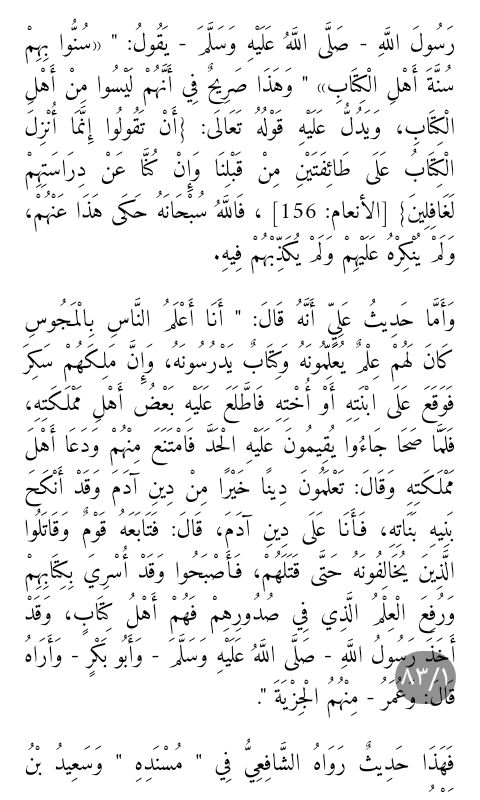 رَسُولَ اللَّهِ - صَلَّى اللَّهُ عَلَيْهِ وَسَلَّمَ - يَقُولُ: " «سُنُّوا بِهِمْ
سُنَّةَ أَهْلِ الْكِتَابِ» " وَهَذَا صَرِيحٌ فِي أَنَّهُمْ لَيْسُوا مِنْ أَهْلِ
الْكِتَابِ، وَيَدُلُّ عَلَيْهِ قَوْلُهُ تَعَالَى: {أَنْ تَقُولُوا إِنَّمَا أُنْزِلَ
الْكِتَابُ عَلَى طَائِفَتَيْنِ مِنْ قَبْلِنَا وَإِنْ كُنَّا عَنْ دِرَاسَتِهِمْ
لَغَافِلِينَ} [الأنعام: 156] ، فَاللَّهُ سُبْحَانَهُ حَكَى هَذَا عَنْهُمْ،
وَلَمْ يُنْكِرْهُ عَلَيْهِمْ وَلَمْ يُكَذِّبْهُمْ فِيهِ.
وَأَمَّا حَدِيثُ عَلِيٍّ أَنَّهُ قَالَ: " أَنَا أَعْلَمُ النَّاسِ بِالْمَجُوسِ
كَانَ لَهُمْ عِلْمٌ يُعَلِّمُونَهُ وَكِتَابٌ يَدْرُسُونَهُ، وَإِنَّ مَلِكَهُمْ سَكِرَ
فَوَقَعَ عَلَى ابْنَتِهِ أَوْ أُخْتِهِ فَاطَّلَعَ عَلَيْهِ بَعْضُ أَهْلِ مَمْلَكَتِهِ،
فَلَمَّا صَحَا جَاءُوا يُقِيمُونَ عَلَيْهِ الْحَدَّ فَامْتَنَعَ مِنْهُمْ وَدَعَا أَهْلَ
مَمْلَكَتِهِ وَقَالَ: تَعْلَمُونَ دِينًا خَيْرًا مِنْ دِينِ آدَمَ وَقَدْ أَنْكَحَ
بَنِيهِ بَنَاتِهِ، فَأَنَا عَلَى دِينِ آدَمَ، قَالَ: فَتَابَعَهُ قَوْمٌ وَقَاتَلُوا
الَّذِينَ يُخَالِفُونَهُ حَتَّى قَتَلَهُمْ، فَأَصْبَحُوا وَقَدْ أُسْرِيَ بِكِتَابِهِمْ
وَرُفِعَ الْعِلْمُ الَّذِي فِي صُدُورِهِمْ فَهُمْ أَهْلُ كِتَابٍ، وَقَدْ
أَخَذَ رَسُولُ اللَّهِ - صَلَّى اللَّهُ عَلَيْهِ وَسَلَّمَ - وَأَبُو بَكْرٍ - وَأَرَاهُ
٨٣/١
قَالَ: وَعُمَرُ - مِنْهُمُ الْجِزْيَةَ ".
فَهَذَا حَدِيثٌ رَوَاهُ الشَّافِعِيُّ فِي " مُسْنَدِهِ " وَسَعِيدُ بْنُ